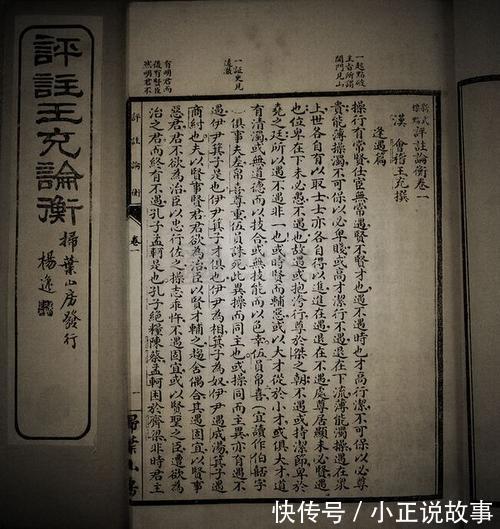 評註王充論衡
掃葉山房發行
楊逸
一起點破
主客所謂
開門見山
一証史見
遠嚴
有明君而
後有賢臣
然明君不
新式標點 評註論衡卷一
漢 會稽王充撰
逢遇篇
操行有常賢仕宦無常遇賢不賢才也遇不遇時也才高行潔不可保以必尊
貴能薄操濁不可保以必卑賤或高才潔行不遇退在下流薄能濁操遇在衆
上世各自有以取士士亦各自得以進進在遇退在不遇處尊居顯未必賢遇
也位卑在下未必愚不遇也故遇或抱洿行尊於桀之朝不遇或持潔節卑於
堯之廷所以遇不遇非一也或時賢而輔惡或以大才從於小才或俱大才道
有清濁或無道德而以技合或無技能而以色幸伍員帛喜一宜讀作伯嚭字
一俱事夫差帛喜尊重伍員誅死此異操而同主也或操同而主異亦有遇不
遇伊尹箕子是也伊尹箕子才俱也伊尹為相箕子為奴伊尹遇成湯箕子遇
商紂也夫以賢事賢君君欲為治臣以賢才輔之趨舍偶合其遇固宜以賢事
惡君君不欲為治臣以忠行佐之操志乖忤不遇固宜或以賢聖之臣遭欲為
治之君而終有不遇孔子孟軻是也孔子絕糧陳蔡孟軻困於齊梁非時君主
評註論衡
卷一
一
掃葉山房
快传号/小正说故事